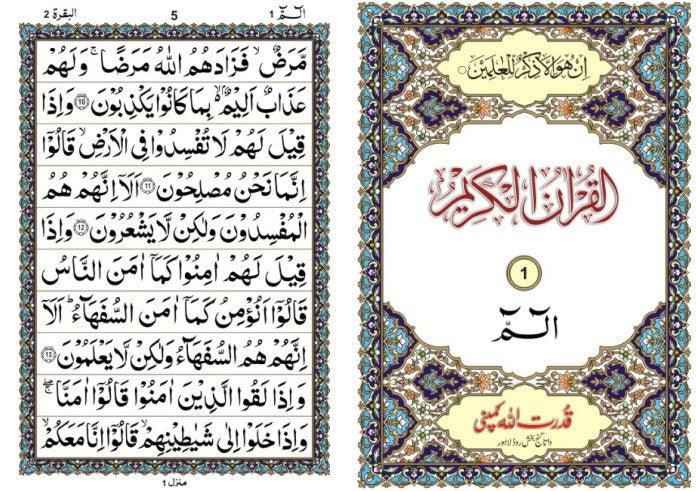 البقرة 2
5
الٓمّٓ 1
مَّرَضٌ ۙ فَزَادَهُمُ اللّٰهُ مَرَضًا ۚ وَلَهُمْ
عَذَابٌ اَلِيْمٌۢ ۙ بِمَا كَانُوْا يَكْذِبُوْنَ ۝10 وَاِذَا
قِيْلَ لَهُمْ لَا تُفْسِدُوْا فِى الْاَرْضِ ۙ قَالُوْٓا
اِنَّمَا نَحْنُ مُصْلِحُوْنَ ۝11 اَلَآ اِنَّهُمْ هُمُ
الْمُفْسِدُوْنَ وَلٰكِنْ لَّا يَشْعُرُوْنَ ۝12 وَاِذَا
قِيْلَ لَهُمْ اٰمِنُوْا كَمَآ اٰمَنَ النَّاسُ
قَالُوْٓا اَنُؤْمِنُ كَمَآ اٰمَنَ السُّفَهَآءُ ؕ اَلَآ
اِنَّهُمْ هُمُ السُّفَهَآءُ وَلٰكِنْ لَّا يَعْلَمُوْنَ ۝13
وَاِذَا لَقُوا الَّذِيْنَ اٰمَنُوْا قَالُوْٓا اٰمَنَّا ۚۖ
وَاِذَا خَلَوْا اِلٰى شَيٰطِيْنِهِمْ ۙ قَالُوْٓا اِنَّا مَعَكُمْ ۙ
منزل 1
اِنْ هُوَ اِلَّا ذِكْرٌ لِّلْعٰلَمِيْنَ
القُرْاٰنُ الْكَرِيْمُ
1
الٓمّٓ
قدرت اللہ کمپنی
داتا گنج بخش روڈ لاہور